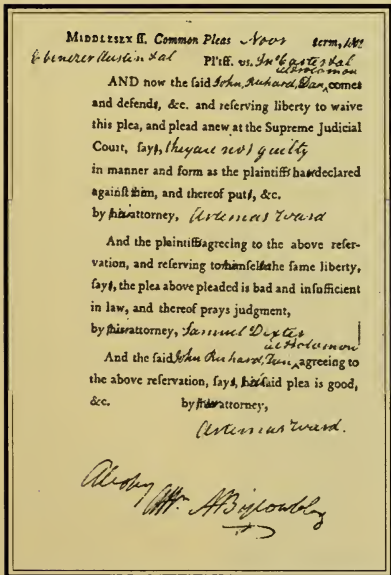 MIDDLESEX ſſ. Common Pleas Nov term, 180
Ebenezer Austin & al Pl'tiff. vs. Jno Carter & al
& Solomon
AND now the said John, Richard, Dan, comes
and defends, &c. and reserving liberty to waive
this plea, and plead anew at the Supreme Judicial
Court, ſayſ, they are not guilty
in manner and form as the plaintiffs ha declared
againſt them, and thereof putſ, &c.
by attorney, Artemas Ward
And the plaintiffs agreeing to the above reſer-
vation, and reſerving to the ſame liberty,
ſayſ, the plea above pleaded is bad and inſufficient
in law, and thereof prays judgment,
by attorney, Samuel Dexter
& Solomon
And the ſaid John, Richard, Dan, agreeing to
the above reſervation, ſayſ, ſaid plea is good,
&c. by attorney,
Artemas Ward.
A copy
Att